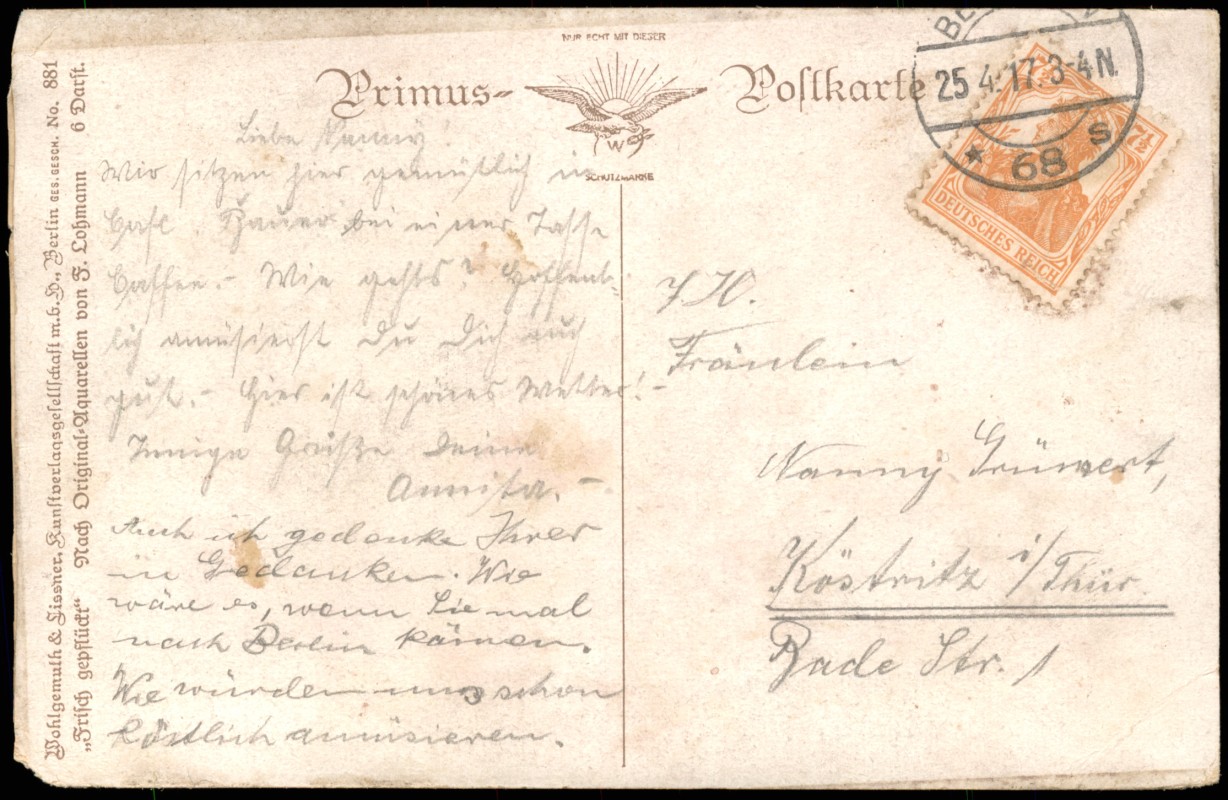 NUR ECHT MIT DIESER
Primus-Postkarte
W
SCHUTZMARKE
Wohlgemuth & Lissner, Kunstverlagsgesellschaft m.b.H., Berlin GES. GESCH. No. 881
„Frisch gepflückt“ Nach Original-Aquarellen von F. Lohmann 6 Darst.
25 4. 17. 3-4 N.
* 68 s
7½ 7½
DEUTSCHES REICH
Liebe Nanny!
Wir sitzen hier gemütlich im
Café Bauer bei einer Tasse
Caffee. – Wie gehts? Hoffent-
lich amüsierst Du Dich auch
gut. – Hier ist schönes Wetter! –
Innige Grüße Deine
Annita. –
Auch ich gedenke Ihrer
in Gedanken. Wie
wäre es, wenn Sie mal
nach Berlin kämen.
Wir würden uns schon
köstlich amüsieren.
Fräulein
Nanny Grünert,
Köstritz i/Thür.
Bade Str. 1